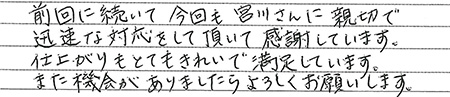 前回に続いて今回も宮川さんに親切で
迅速な対応をして頂いて感謝しています。
仕上がりもとてもきれいで満足しています。
また機会がありましたらよろしくお願いします。